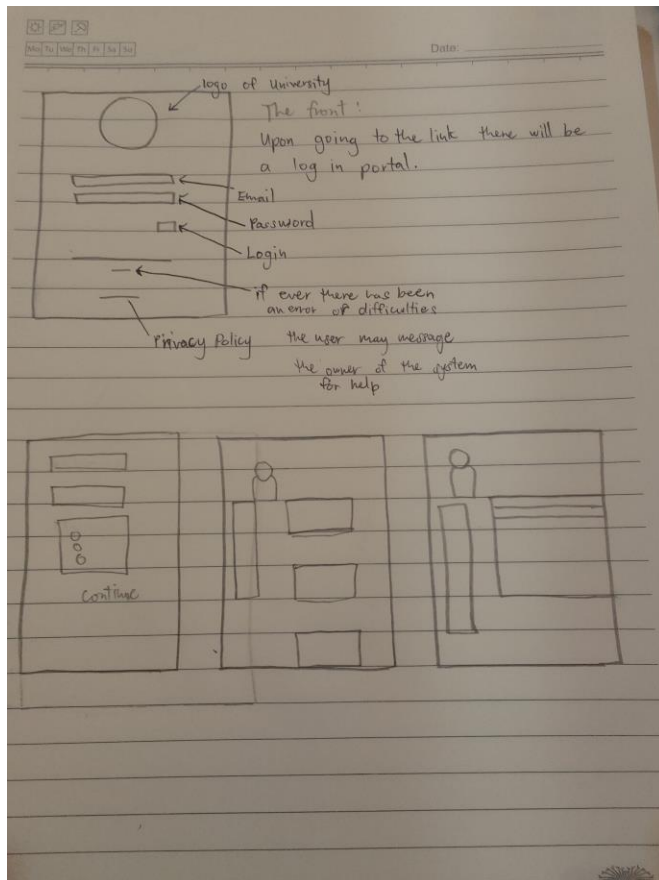 Mo Tu We Th Fr Sa Su
Date:
logo of University
The front :
Upon going to the link there will be
a log in portal.
Email
Password
Login
if ever there has been
an error of difficulties
the user may message
the owner of the system
for help
Privacy Policy
Continue